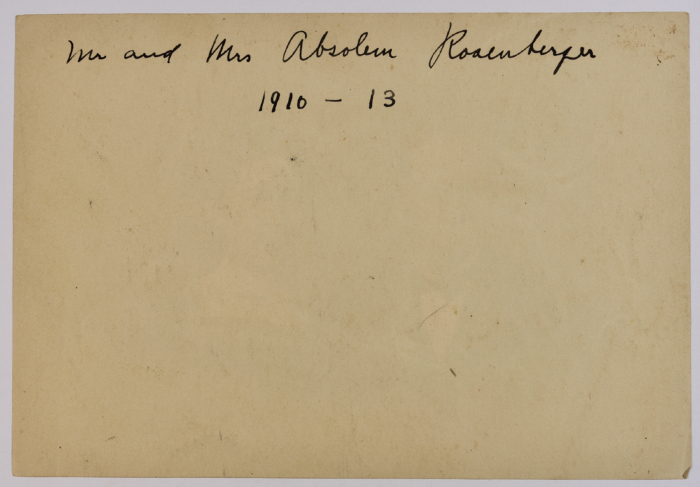 Mr and Mrs Absolem Rosenberger
1910 - 13